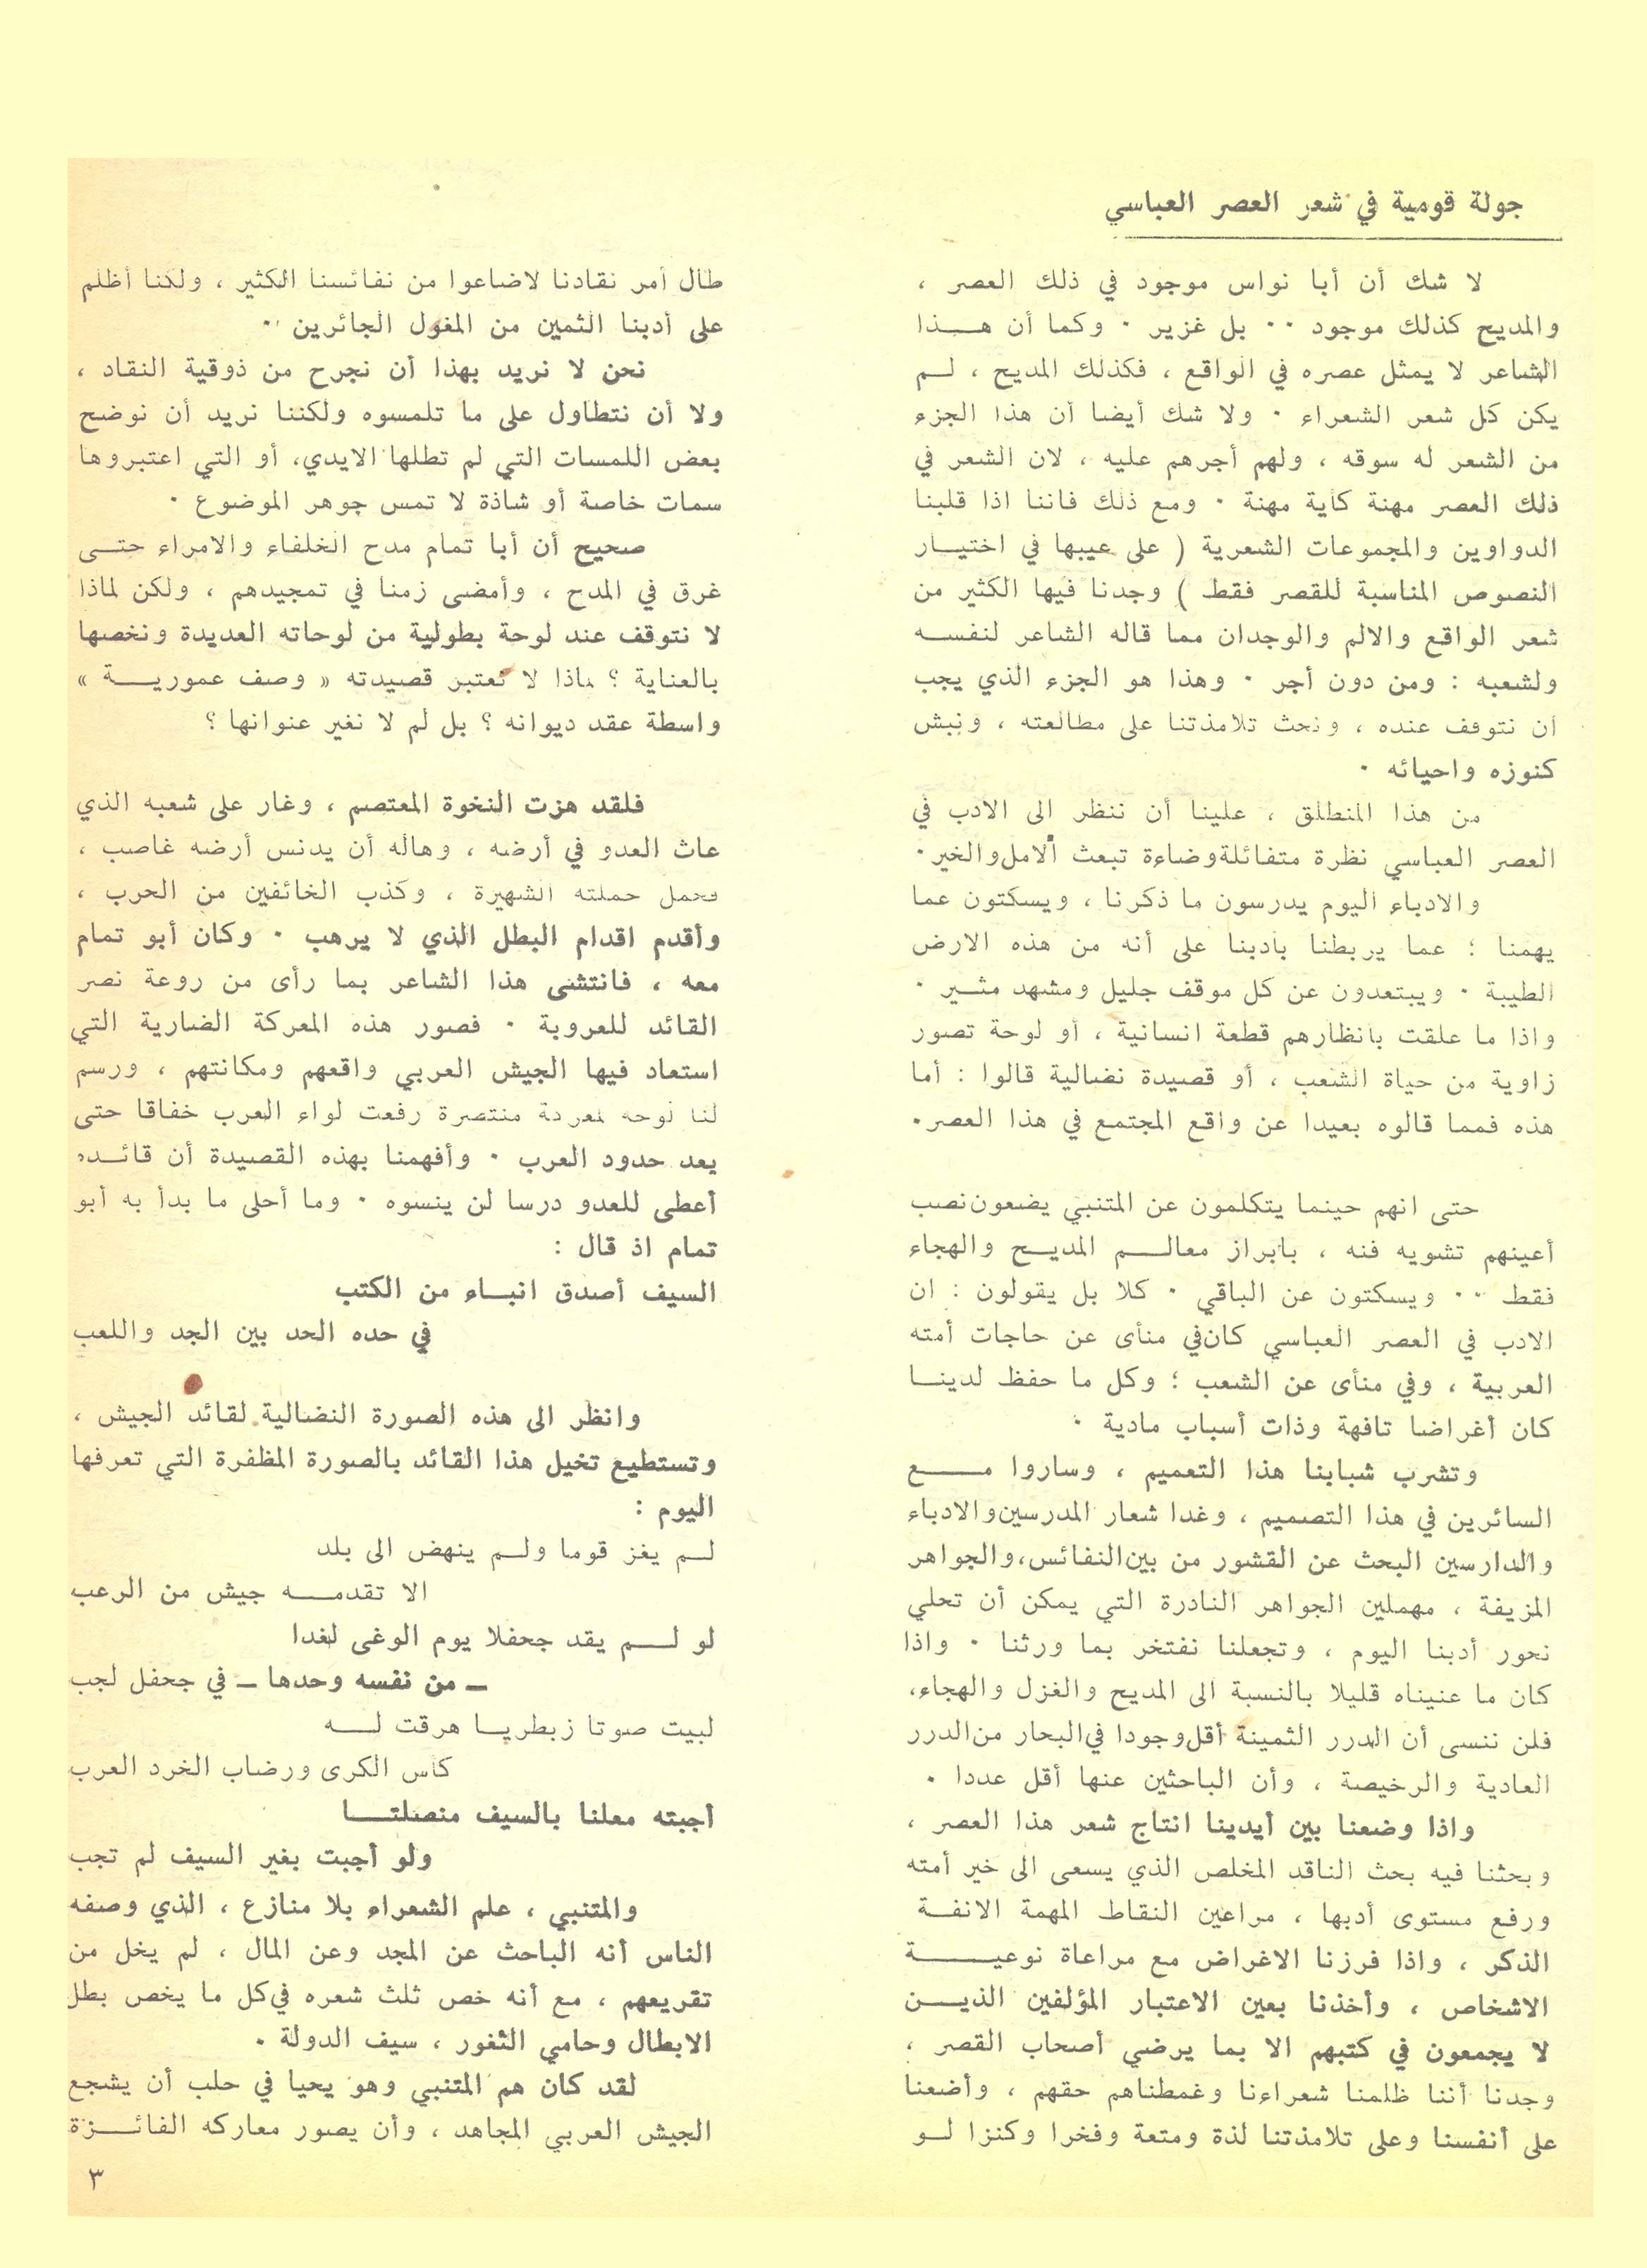 جولة قومية في شعر العصر العباسي
لا شك أن أبا نواس موجود في ذلك العصر ،
والمديح كذلك موجود ٠٠ بل غزير ٠ وكما أن هـــذا
الشاعر لا يمثل عصره في الواقع ، فكذلك المديح ، لــم
يكن كل شعر الشعراء ٠ ولا شك أيضا أن هذا الجزء
من الشعر له سوقه ، ولهم أجرهم عليه ، لان الشعر في
ذلك العصر مهنة كأية مهنة ٠ ومع ذلك فاننا اذا قلبنا
الدواوين والمجموعات الشعرية ( على عيبها في اختيــار
النصوص المناسبة للقصر فقط ) وجدنا فيها الكثير من
شعر الواقع والالم والوجدان مما قاله الشاعر لنفســه
ولشعبه : ومن دون أجر ٠ وهذا هو الجزء الذي يجب
أن نتوقف عنده ، ونحث تلامذتنا على مطالعته ، ونبش
كنوزه واحيائه ٠
من هذا المنطلق ، علينا أن ننظر الى الادب في
العصر العباسي نظرة متفائلة وضاءة تبعث الامل والخير ٠
والادباء اليوم يدرسون ما ذكرنا ، ويسكتون عما
يهمنا ؛ عما يربطنا بأدبنا على أنه من هذه الارض
الطيبة ٠ ويبتعدون عن كل موقف جليل ومشهد مثــير ٠
واذا ما علقت بأنظارهم قطعة انسانية ، أو لوحة تصور
زاوية من حياة الشعب ، أو قصيدة نضالية قالوا : أما
هذه فمما قالوه بعيدا عن واقع المجتمع في هذا العصر ٠
حتى انهم حينما يتكلمون عن المتنبي يضعون نصب
أعينهم تشويه فنه ، بابراز معالــم المديــح والهجاء
فقط ٠٠ ويسكتون عن الباقي ٠ كلا بل يقولون : ان
الادب في العصر العباسي كان في منأى عن حاجات أمته
العربية ، وفي منأى عن الشعب ؛ وكل ما حفظ لدينــا
كان أغراضا تافهة وذات أسباب مادية ٠
وتشرب شبابنا هذا التعميم ، وساروا مـــع
السائرين في هذا التصميم ، وغدا شعار المدرسين والادباء
والدارسين البحث عن القشور من بين النفائس، والجواهر
المزيفة ، مهملين الجواهر النادرة التي يمكن أن تحلي
نحور أدبنا اليوم ، وتجعلنا نفتخر بما ورثنا ٠ واذا
كان ما عنيناه قليلا بالنسبة الى المديح والغزل والهجاء،
فلن ننسى أن الدرر الثمينة أقل وجودا في البحار من الدرر
العادية والرخيصة ، وأن الباحثين عنها أقل عددا ٠
واذا وضعنا بين أيدينا انتاج شعر هذا العصر ،
وبحثنا فيه بحث الناقد المخلص الذي يسعى الى خير أمته
ورفع مستوى أدبها ، مراعين النقاط المهمة الانفــة
الذكر ، واذا فرزنا الاغراض مع مراعاة نوعيـــة
الاشخاص ، وأخذنا بعين الاعتبار المؤلفين الذيــن
لا يجمعون في كتبهم الا بما يرضي أصحاب القصر ،
وجدنا أننا ظلمنا شعراءنا وغمطناهم حقهم ، وأضعنا
على أنفسنا وعلى تلامذتنا لذة ومتعة وفخرا وكنزا لــو
طال أمر نقادنا لاضاعوا من نفائسنا الكثير ، ولكنا أظلم
على أدبنا الثمين من المغول الجائرين ٠
نحن لا نريد بهذا أن نجرح من ذوقية النقاد ،
ولا أن نتطاول على ما تلمسوه ولكننا نريد أن نوضح
بعض اللمسات التي لم تطلها الايدي، أو التي اعتبروها
سمات خاصة أو شاذة لا تمس جوهر الموضوع ٠
صحيح أن أبا تمام مدح الخلفاء والامراء حتــى
غرق في المدح ، وأمضى زمنا في تمجيدهم ، ولكن لماذا
لا نتوقف عند لوحة بطولية من لوحاته العديدة ونخصها
بالعناية ؟ لماذا لا نعتبر قصيدته « وصف عموريــة »
واسطة عقد ديوانه ؟ بل لم لا نغير عنوانها ؟
فلقد هزت النخوة المعتصم ، وغار على شعبه الذي
عاث العدو في أرضه ، وهاله أن يدنس أرضه غاصب ،
فحمل حملته الشهيرة ، وكذب الخائفين من الحرب ،
وأقدم اقدام البطل الذي لا يرهب ٠ وكان أبو تمام
معه ، فانتشى هذا الشاعر بما رأى من روعة نصر
القائد للعروبة ٠ فصور هذه المعركة الضارية التي
استعاد فيها الجيش العربي واقعهم ومكانتهم ، ورسم
لنا لوحة لمعركة منتصرة رفعت لواء العرب خفاقا حتى
بعد حدود العرب ٠ وأفهمنا بهذه القصيدة أن قائــده
أعطى للعدو درسا لن ينسوه ٠ وما أحلى ما بدأ به أبو
تمام اذ قال :
السيف أصدق انبــاء من الكتب
في حده الحد بين الجد واللعب
وانظر الى هذه الصورة النضالية لقائد الجيش ،
وتستطيع تخيل هذا القائد بالصورة المظفرة التي تعرفها
اليوم :
لــم يغز قوما ولــم ينهض الى بلد
الا تقدمـــه جيش من الرعب
لو لــم يقد جحفلا يوم الوغى لغدا
ــ من نفسه وحدها ــ في جحفل لجب
لبيت صوتا زبطريــا هرقت لــه
كأس الكرى ورضاب الخرد العرب
أجبته معلنا بالسيف منصلتــا
ولو أجبت بغير السيف لم تجب
والمتنبي ، علم الشعراء بلا منازع ، الذي وصفه
الناس أنه الباحث عن المجد وعن المال ، لم يخل من
تقريعهم ، مع أنه خص ثلث شعره في كل ما يخص بطل
الابطال وحامي الثغور ، سيف الدولة ٠
لقد كان هم المتنبي وهو يحيا في حلب أن يشجع
الجيش العربي المجاهد ، وأن يصور معاركه الفائــزة
٣